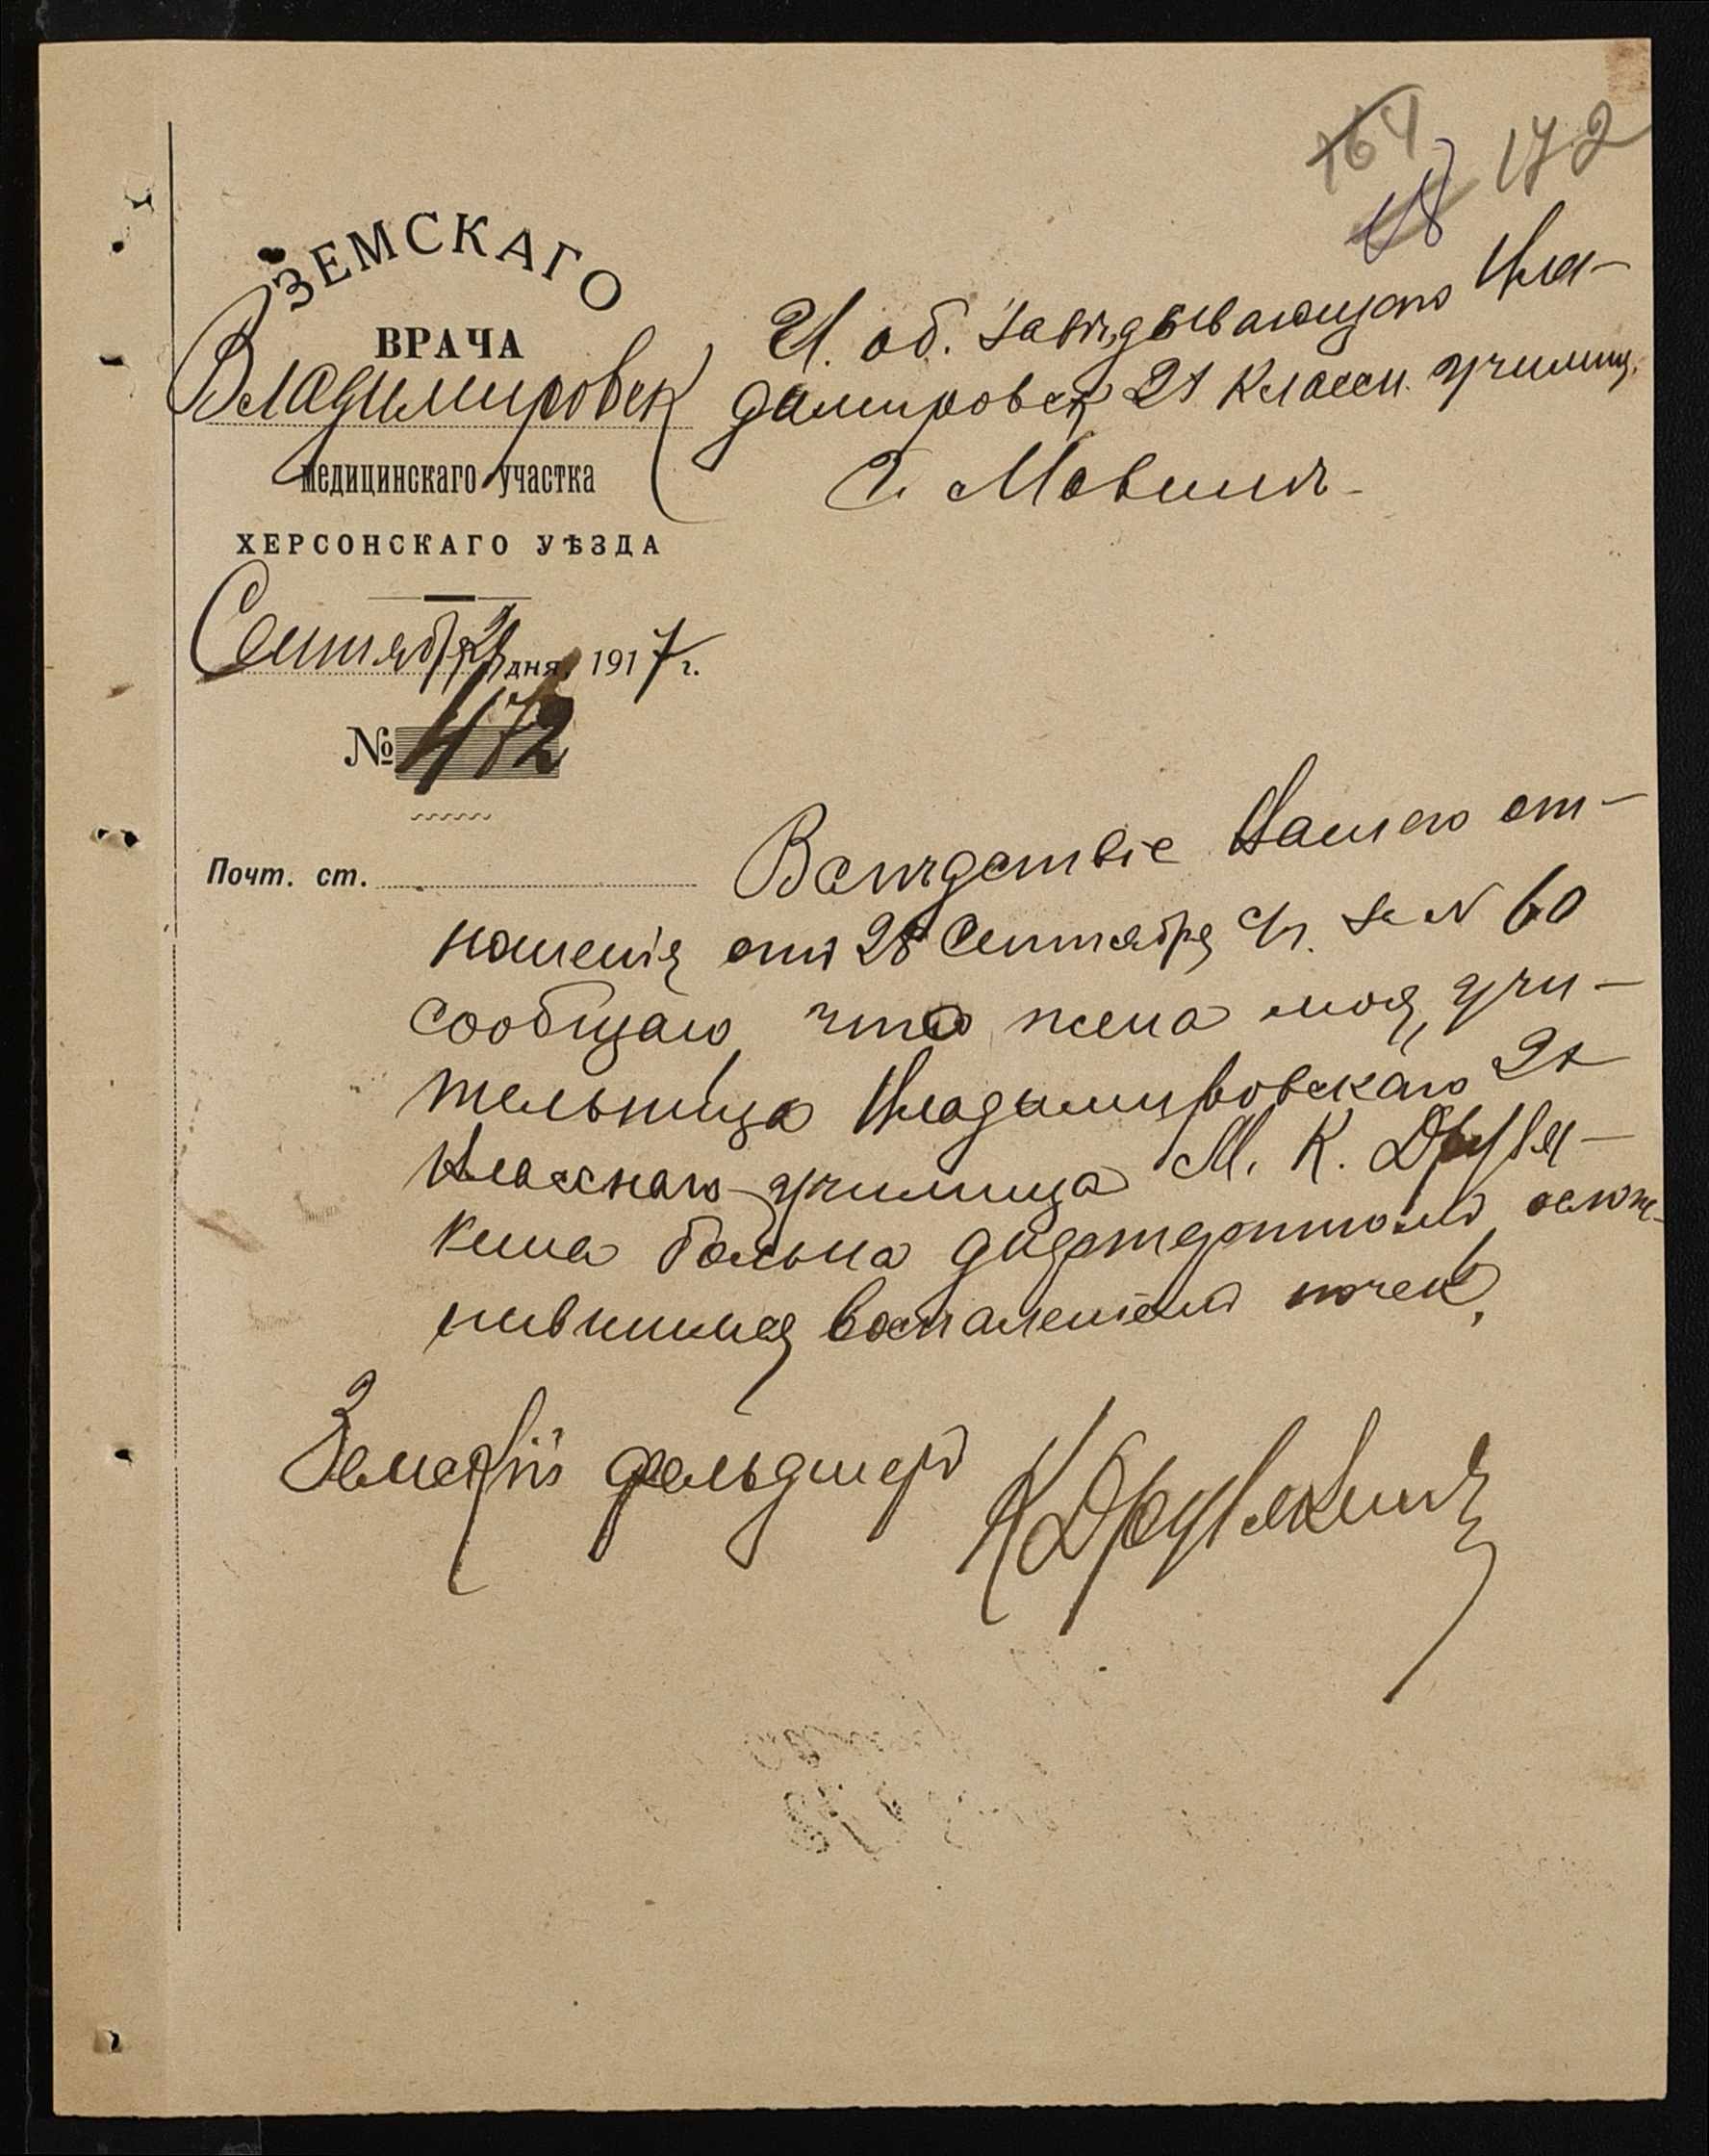 164 172
18
ЗЕМСКАГО
ВРАЧА
Владимировск
медицинскаго участка
ХЕРСОНСКАГО УѢЗДА
Сентября дня 1917 г.
№ 472
Почт. ст.
И. об. Завѣдывающаго Вла-
димировск 2х классн. училищ.
Г. Мовили
Вслѣдствіе Вашего от-
ношенія отъ 28 Сентября с/г. за № 60
сообщаю, что жена моя, учи-
тельница Владимировскаго 2х
класснаго училища М. К. Друзя-
кина больна дифтеритомъ, ослож-
нившимся воспаленіемъ почек.
Земскій фельдшеръ КДрузякинъ